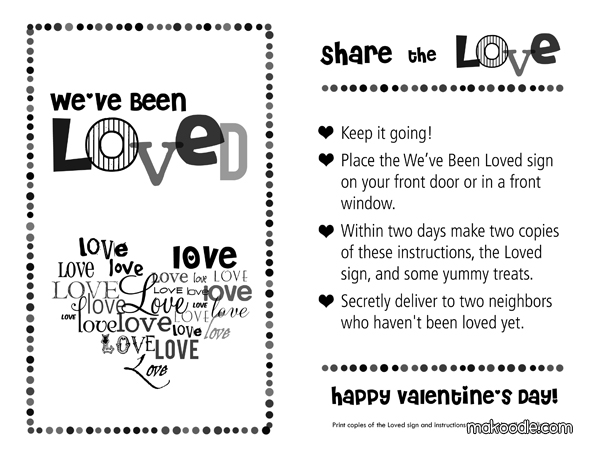 We've Been
LOVED
love love
LOVE love LOVE love LOVE
LOVE Love LOVE love love
love Love LOVE love
love love love love love
LOVE LOVE
Love
share the Love
Keep it going!
Place the We've Been Loved sign
on your front door or in a front
window.
Within two days make two copies
of these instructions, the Loved
sign, and some yummy treats.
Secretly deliver to two neighbors
who haven't been loved yet.
Happy Valentine's Day!
Print copies of the Loved sign and Instructions
makoodle.com